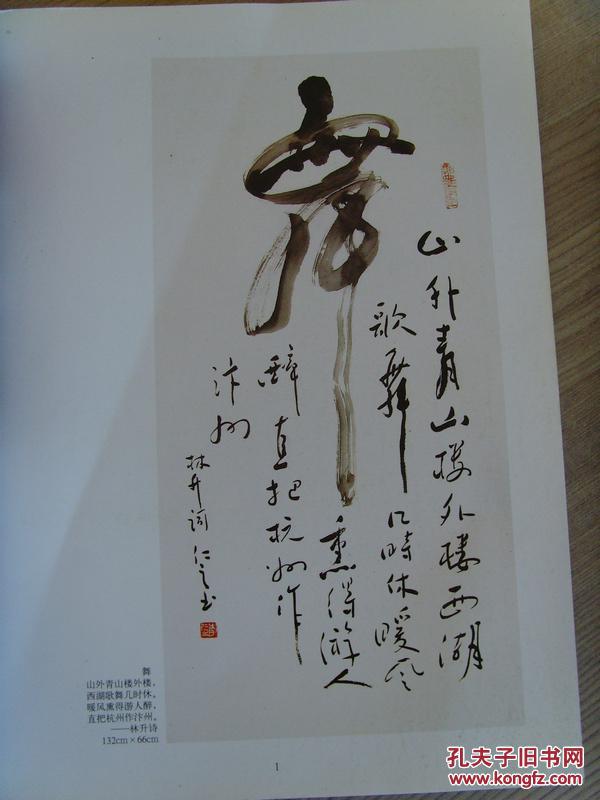 舞
山外青山楼外楼西湖
歌舞几時休暖风
熏得游人
醉直把杭州作
汴州
林升词 仁之书
舞
山外青山楼外楼，
西湖歌舞几时休。
暖风熏得游人醉，
直把杭州作汴州。
——林升诗
132cm×66cm
1
孔夫子旧书网
www.kongfz.com